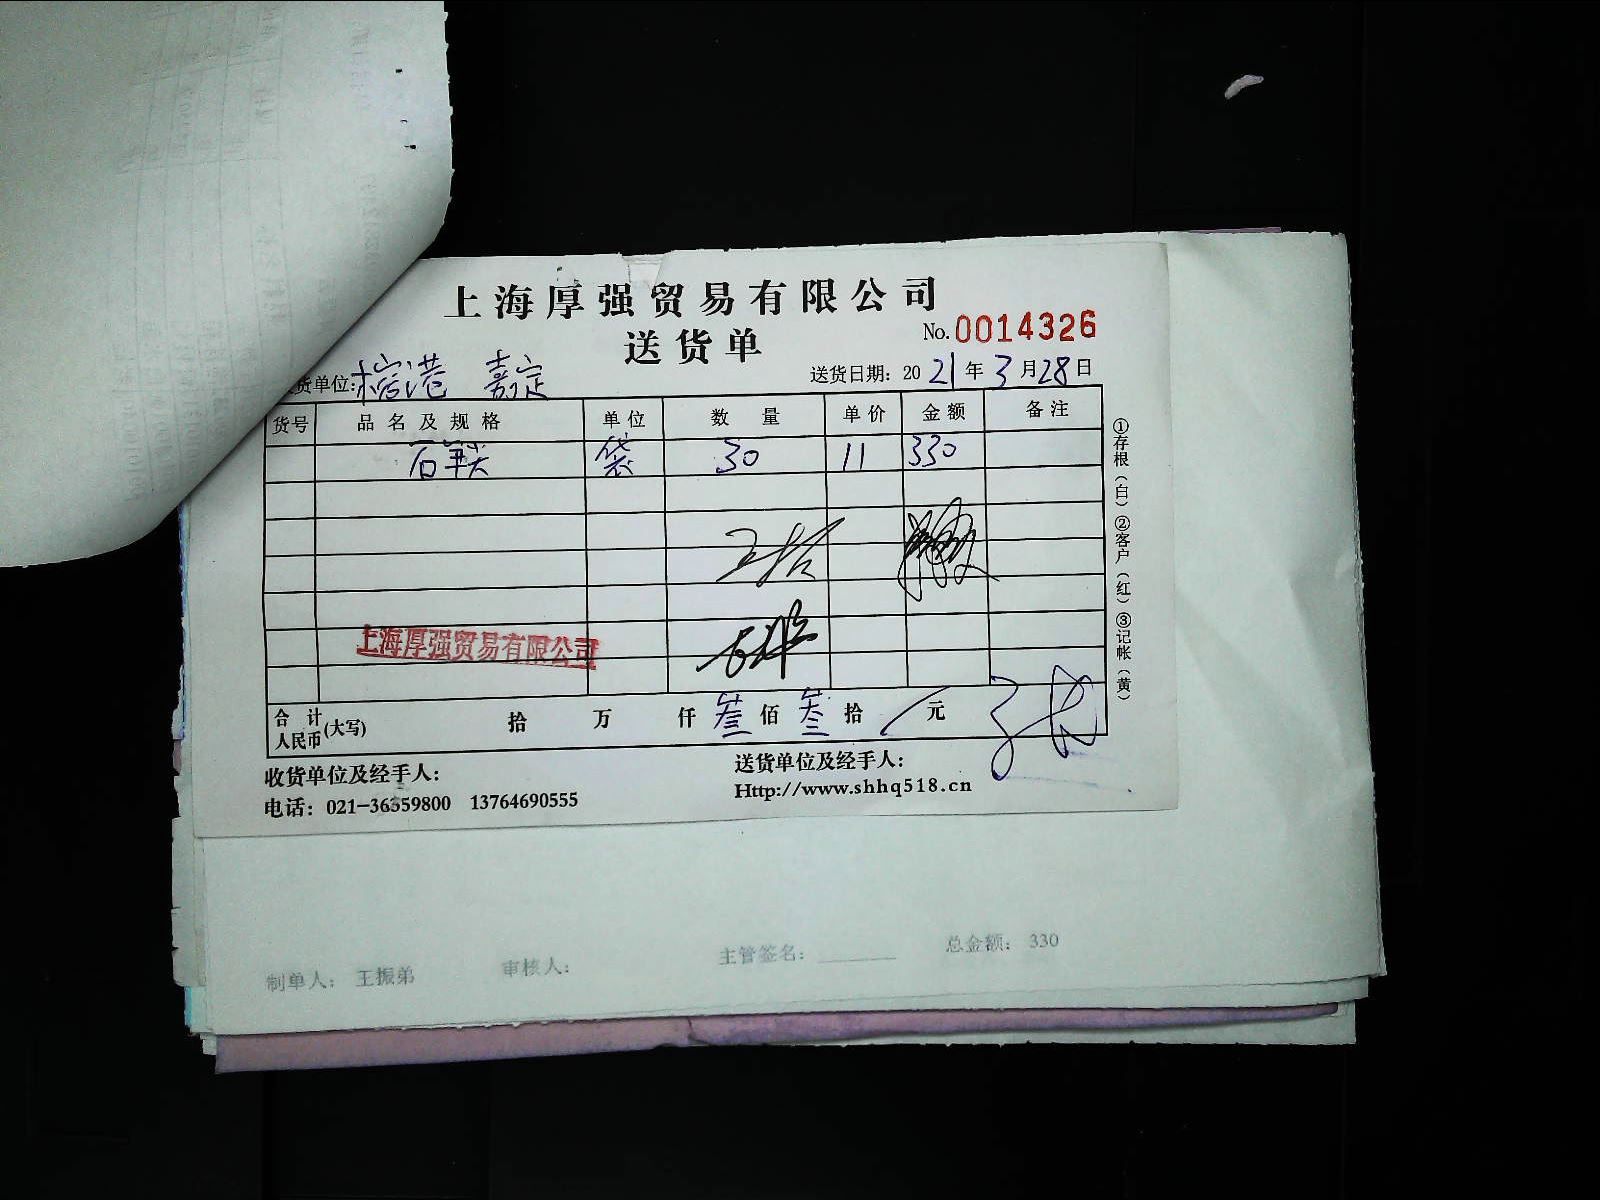 上海厚强贸易有限公司
送货单
No.0014326
货单位: 港 嘉定
送货日期: 2021年3月28日
货号 品名及规格 单位 数量 单价 金额 备注
石 袋 30 11 330
上海厚强贸易有限公司
合计人民币(大写) 拾 万 仟 叁佰 叁拾 元
收货单位及经手人:
送货单位及经手人:
电话: 021-36559800 13764690555
Http://www.shhq518.cn
①存根(白)②客户(红)③记帐(黄)
制单人: 王振弟 审核人: 主管签名: 总金额: 330